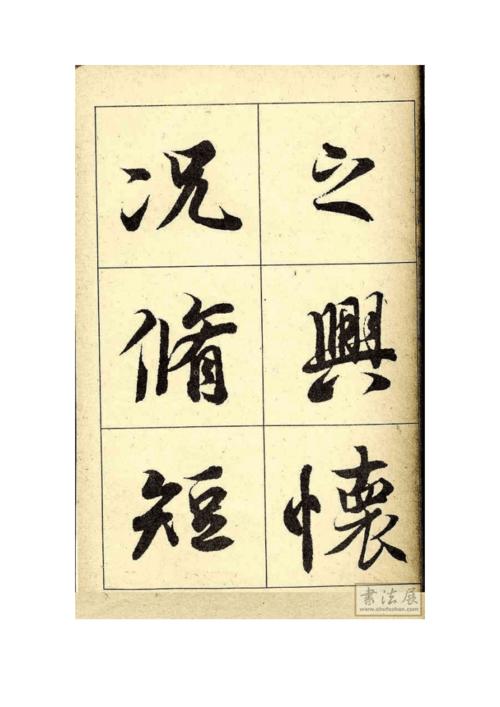 之興懷
况脩短
書法展
www.shufazhan.com